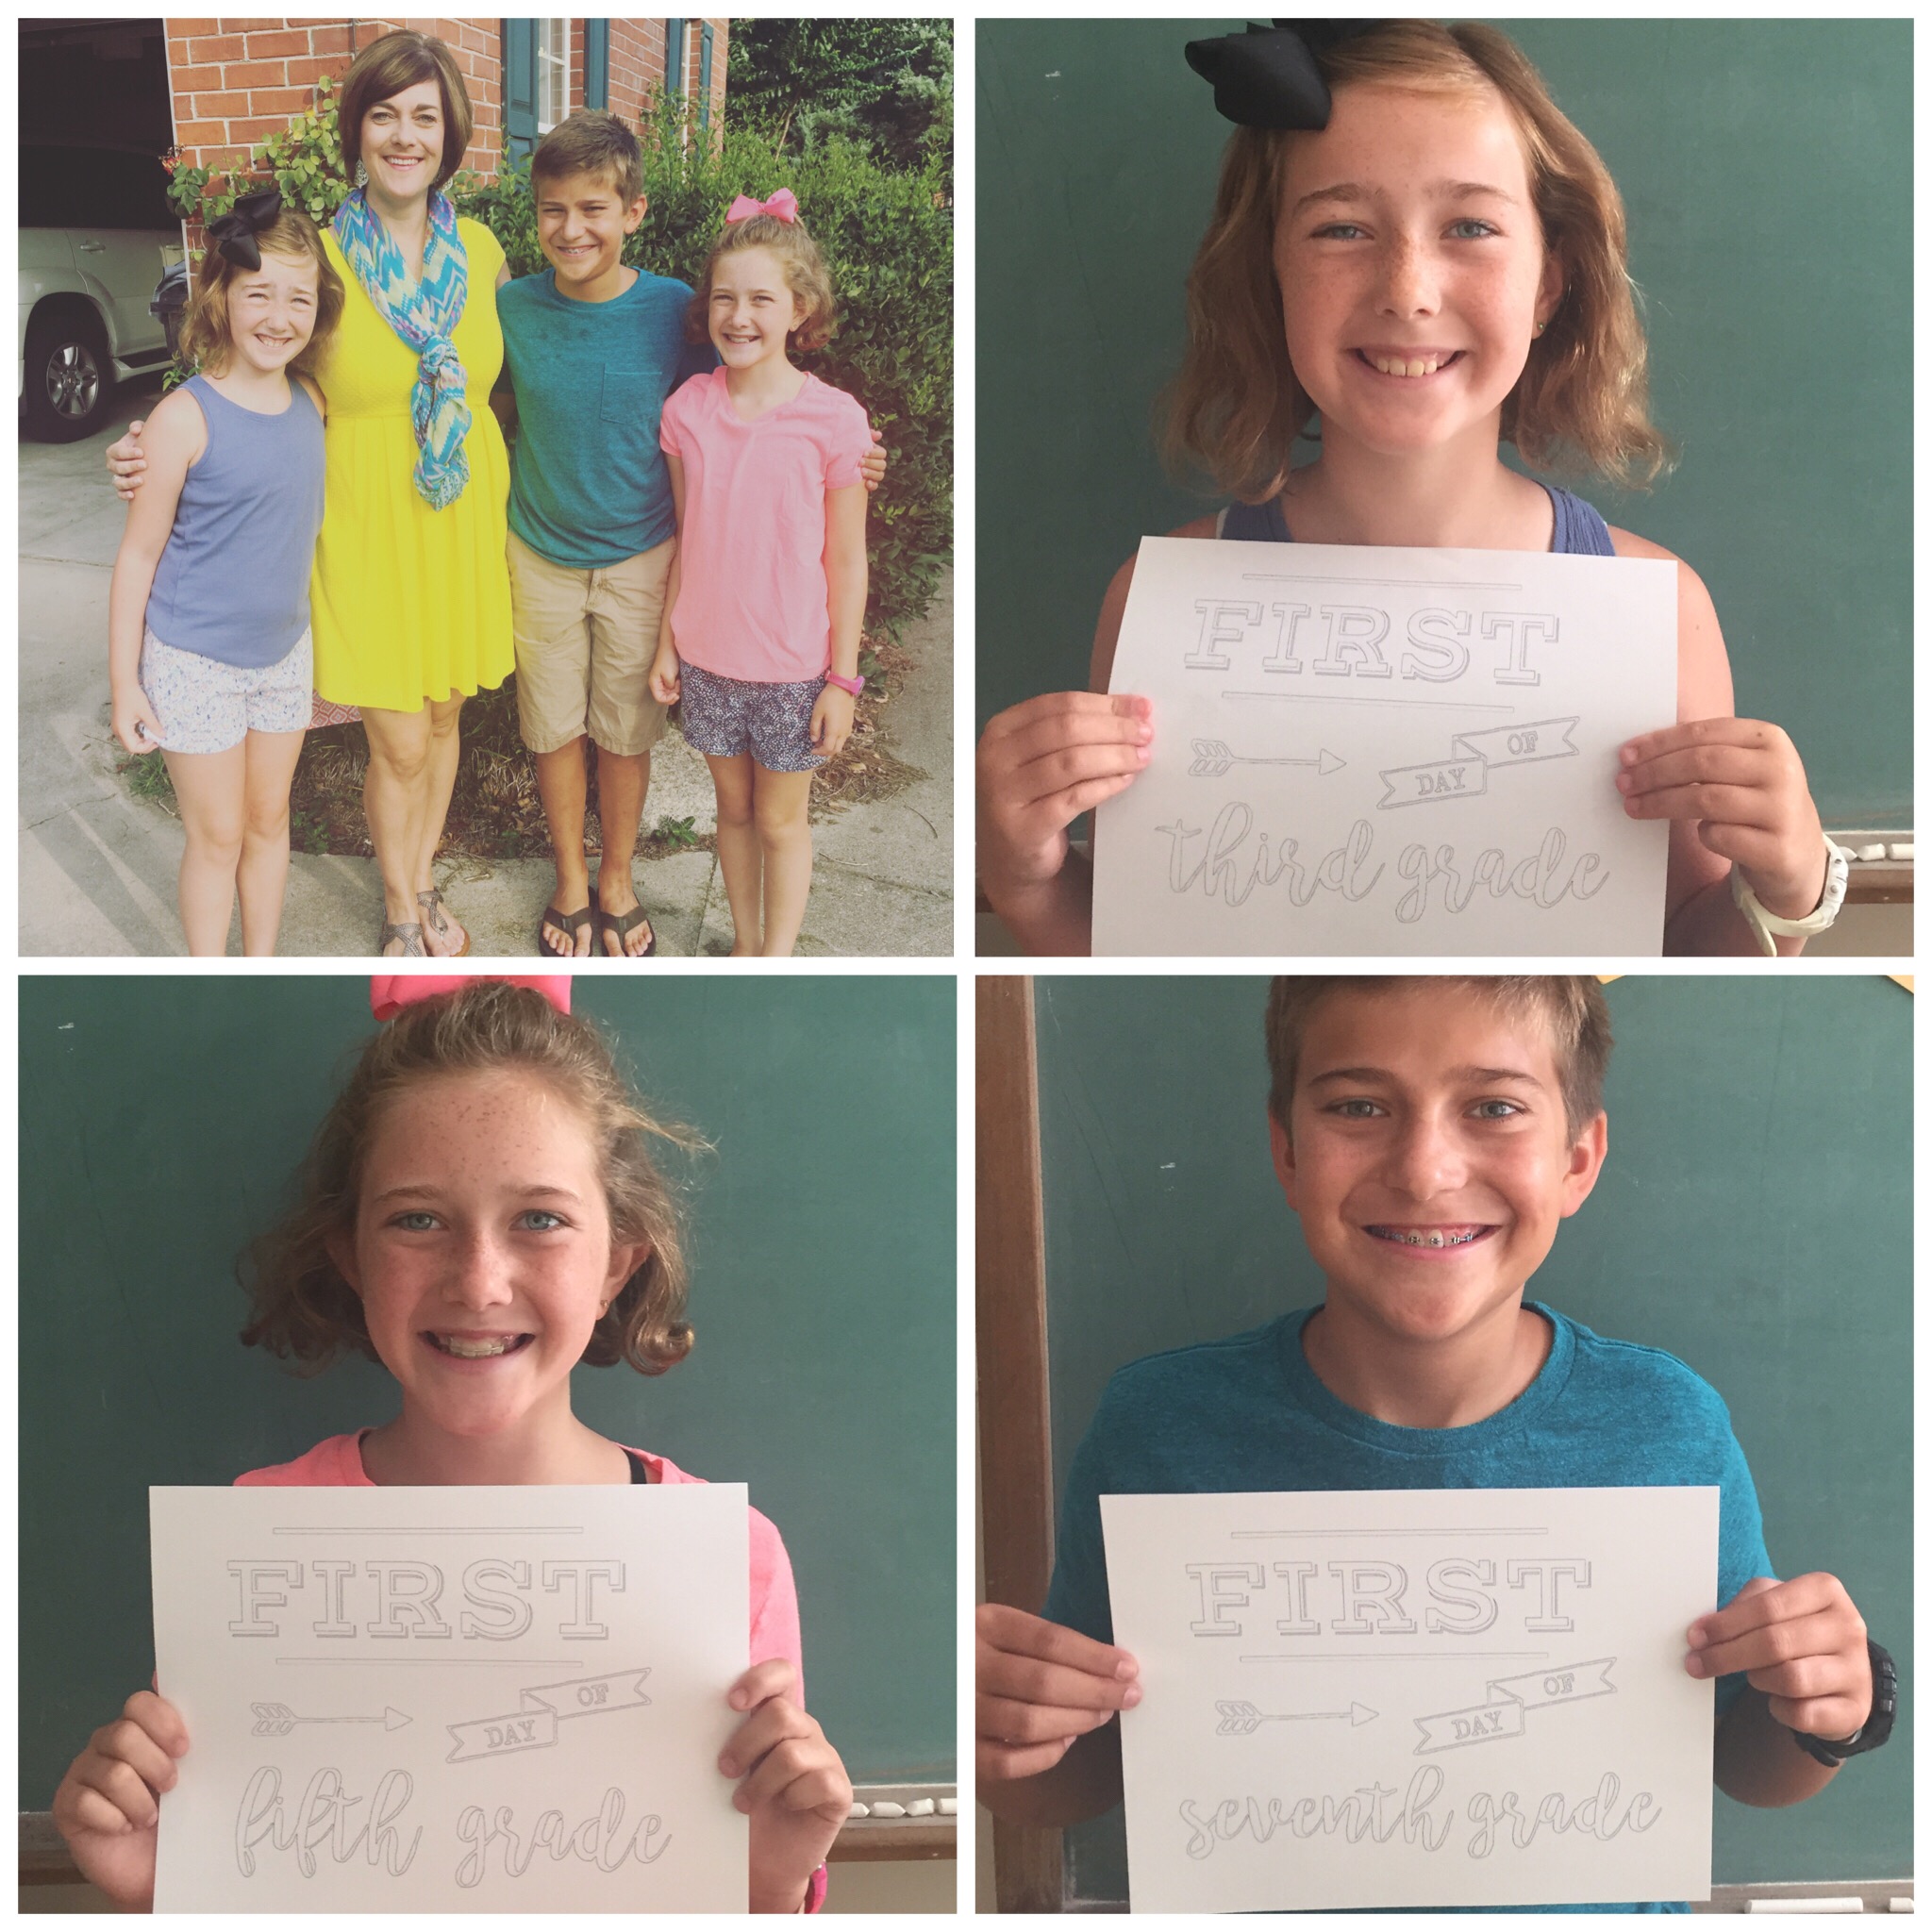 FIRST
DAY OF
third grade
FIRST
DAY OF
fifth grade
FIRST
DAY OF
seventh grade